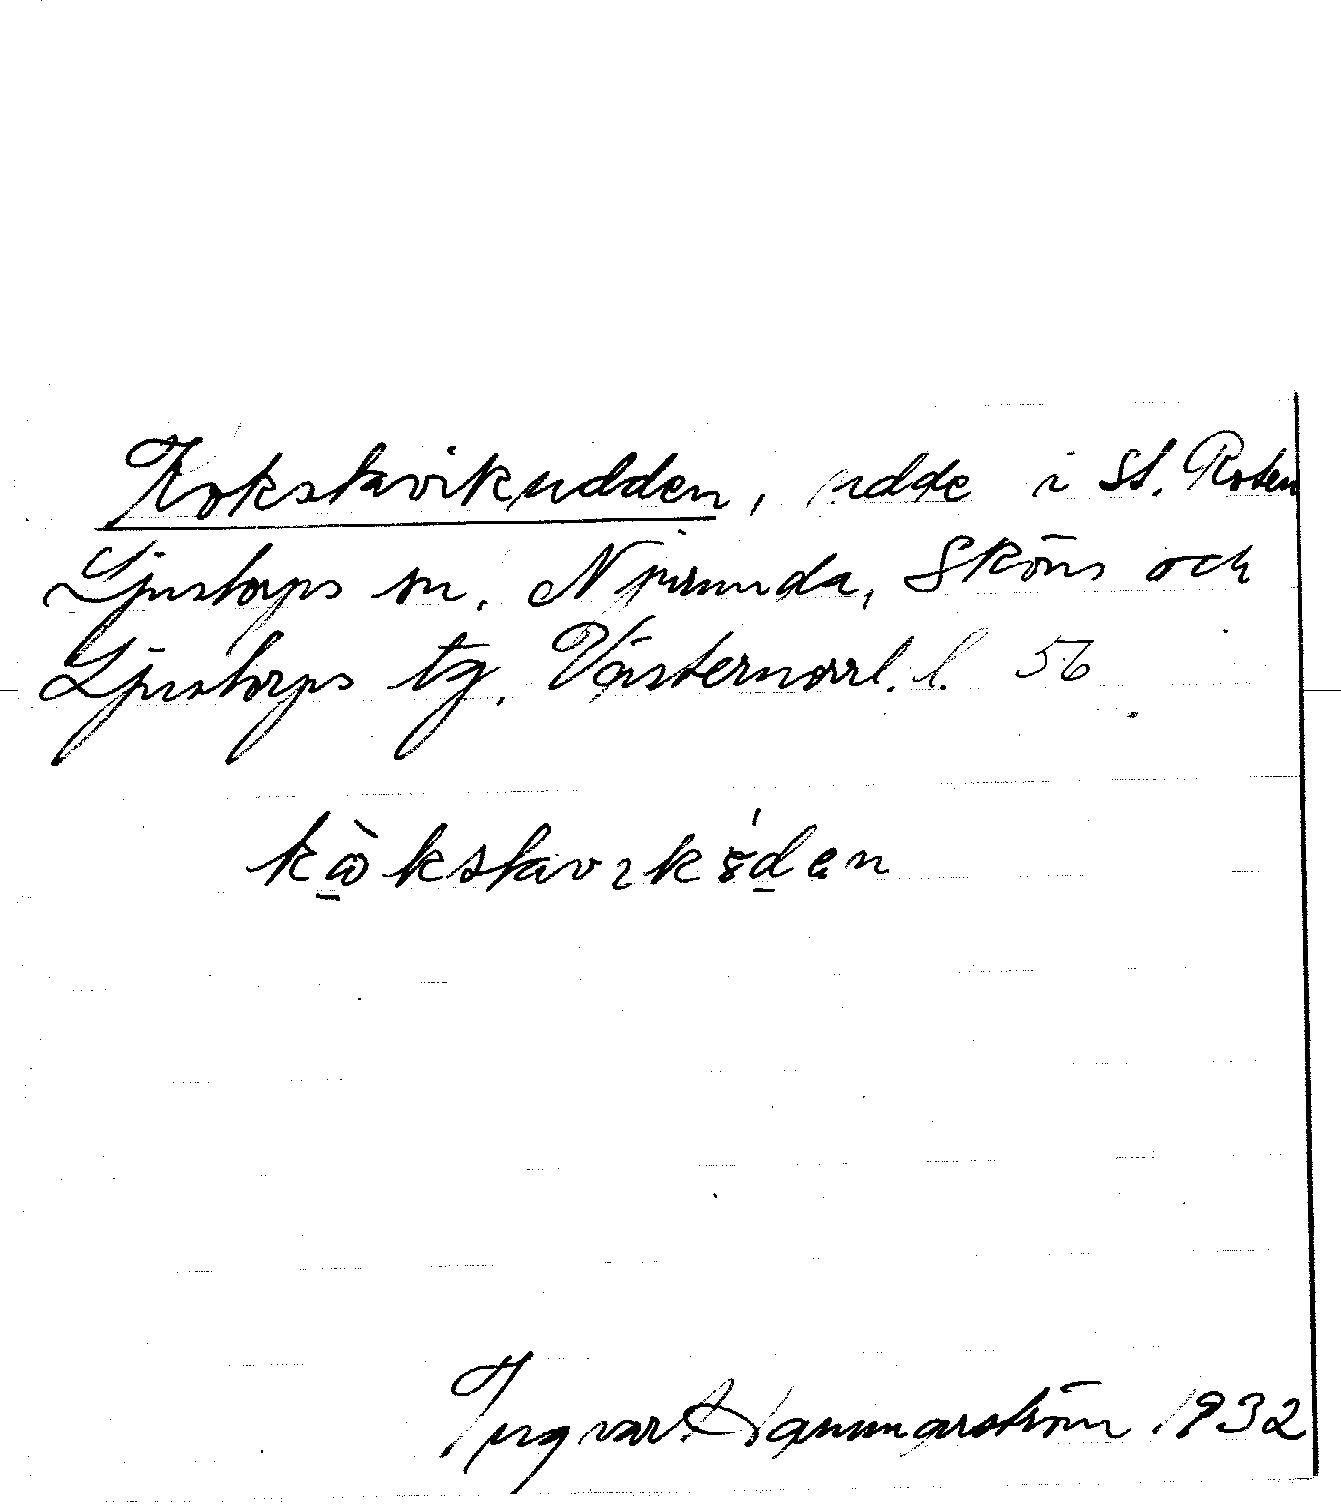 Kokstavikudden, udde i St. Roten
Ljustorps sn. Njurunda, Sköns och
Ljustorps tg. Västernorrl. l. 56
Ingvar Hammarström 1932